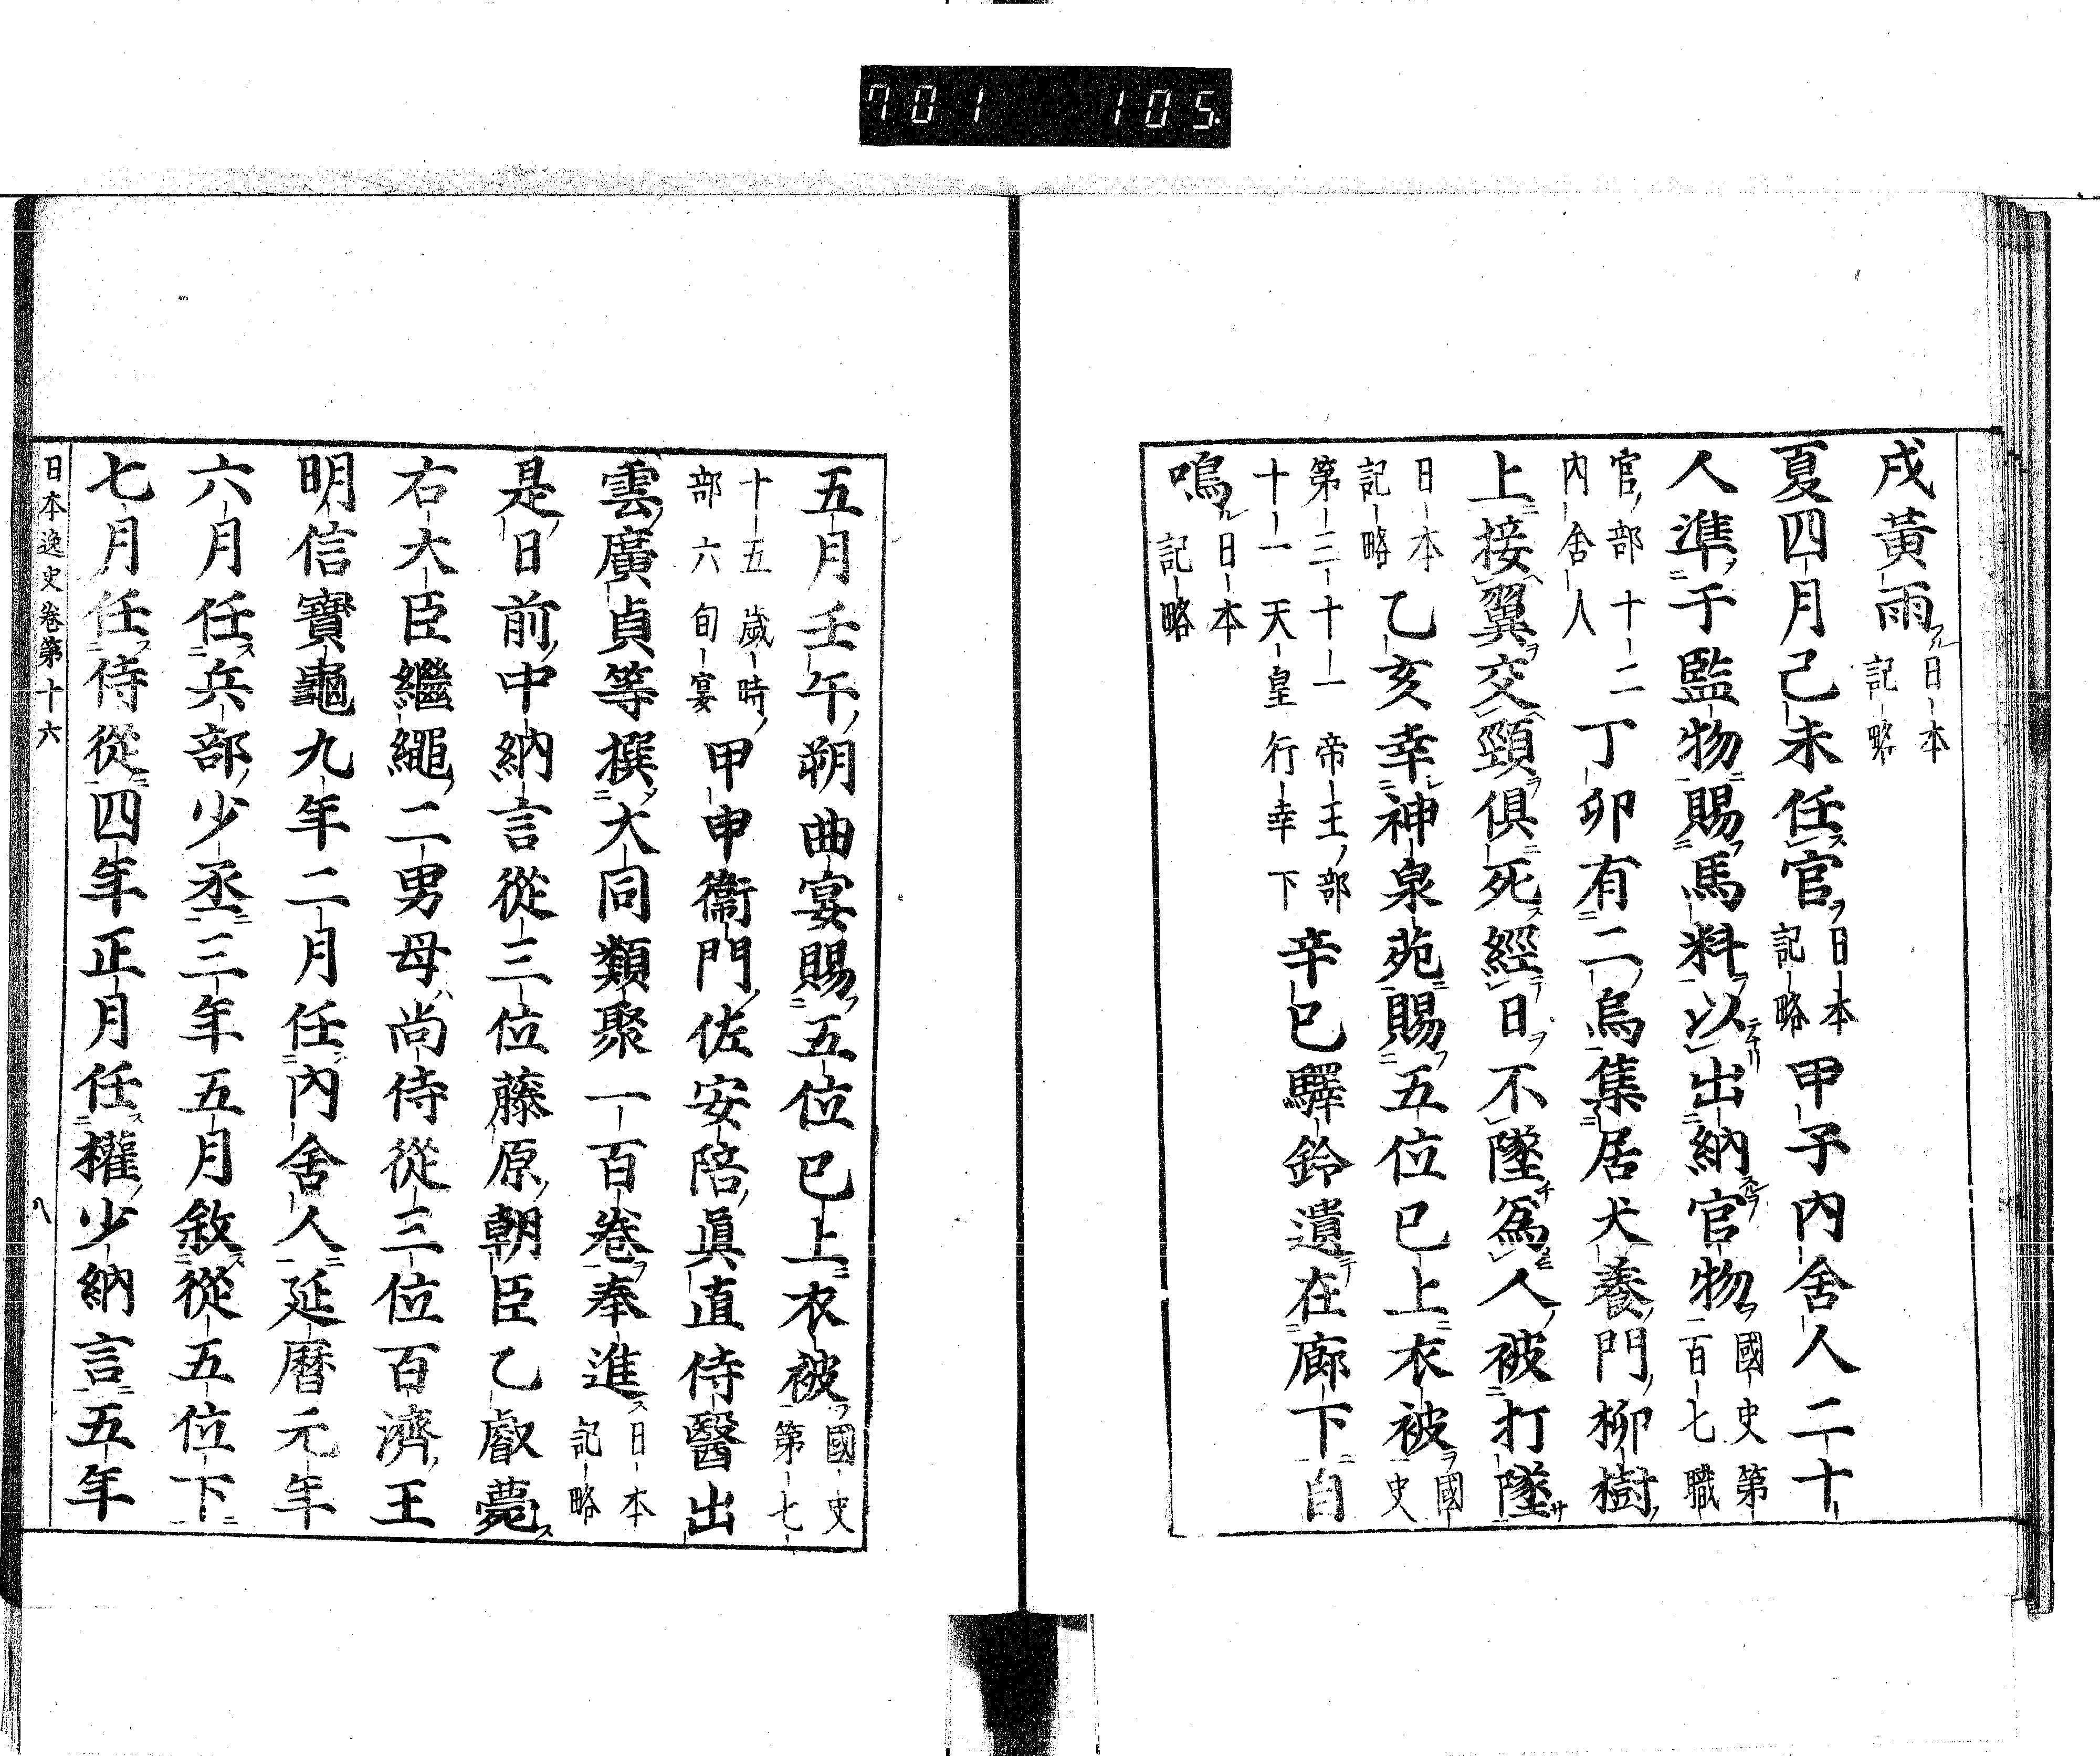 701 105.
戌黃雨日本記略
夏四月己未任官日本記略甲子內舍人二十
人準于監物賜馬料以出納官物國史第一百七職
官部十二內舍人丁卯有二烏集居犬養門柳樹
上接翼交頸俱死經日不墜爲人被打墜
日本記略乙亥幸神泉苑賜五位已上衣被國史
第三十一帝王部十一天皇行幸下辛巳驛鈴遺在廊下自
鳴日本記略
五月壬午朔曲宴賜五位已上衣被國史第七
十五歲時部六旬宴甲申衞門佐安陪眞直侍醫出
雲廣貞等撰大同類聚一百卷奉進日本記略
是日前中納言從三位藤原朝臣乙叡薨
右大臣繼繩二男母尚侍從三位百濟王
明信寶龜九年二月任內舍人延曆元年
六月任兵部少丞三年五月敘從五位下
七月任侍從四年正月任權少納言五年
日本逸史卷第十六 八